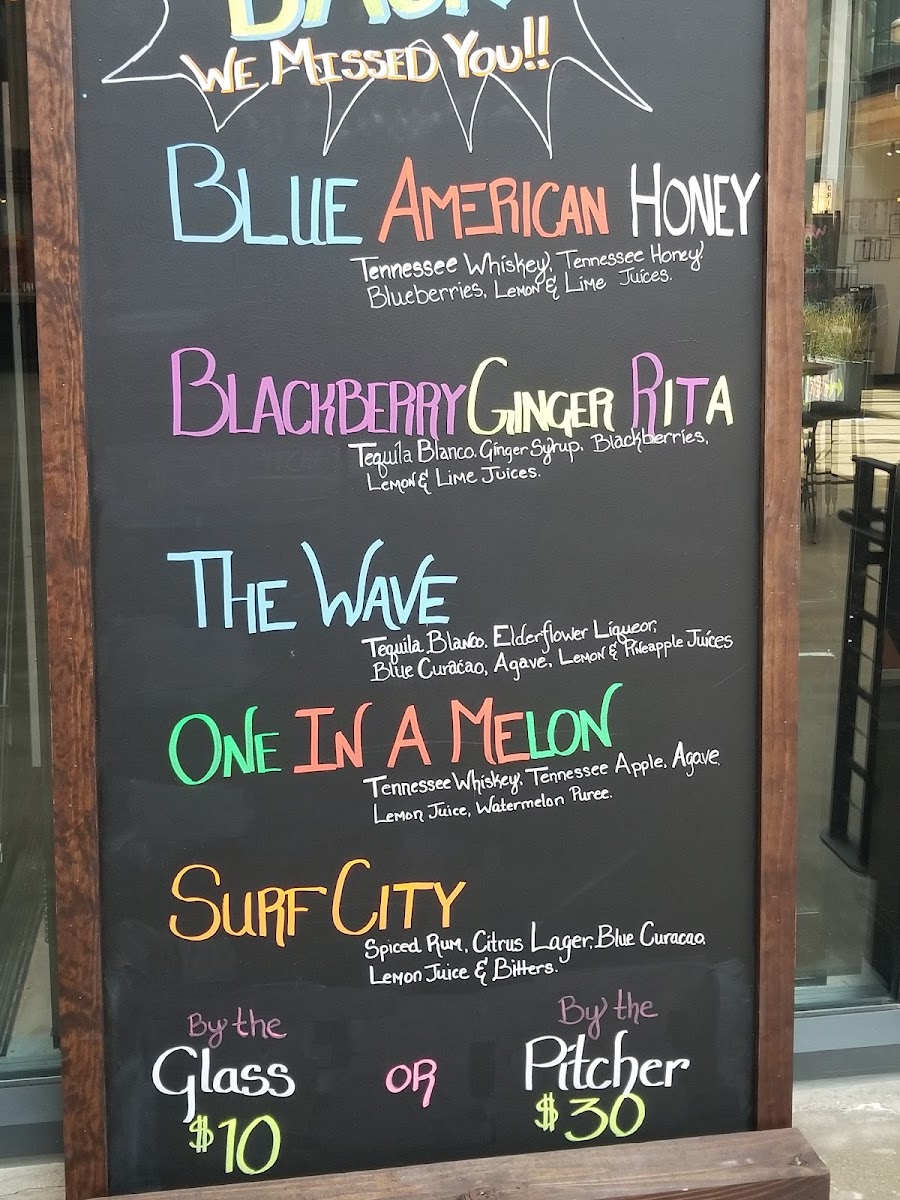 BACK
WE MISSED YOU!!
BLUE AMERICAN HONEY
Tennessee Whiskey, Tennessee Honey,
Blueberries, Lemon & Lime Juices.
BLACKBERRY GINGER RITA
Tequila Blanco, Ginger Syrup, Blackberries,
Lemon & Lime Juices.
THE WAVE
Tequila Blanco, Elderflower Liqueor,
Blue Curacao, Agave, Lemon & Pineapple Juices
ONE IN A MELON
Tennessee Whiskey, Tennessee Apple, Agave
Lemon Juice, Watermelon Puree.
SURF CITY
Spiced Rum, Citrus Lager, Blue Curacao
Lemon Juice & Bitters.
By the Glass $10
OR
By the Pitcher $30